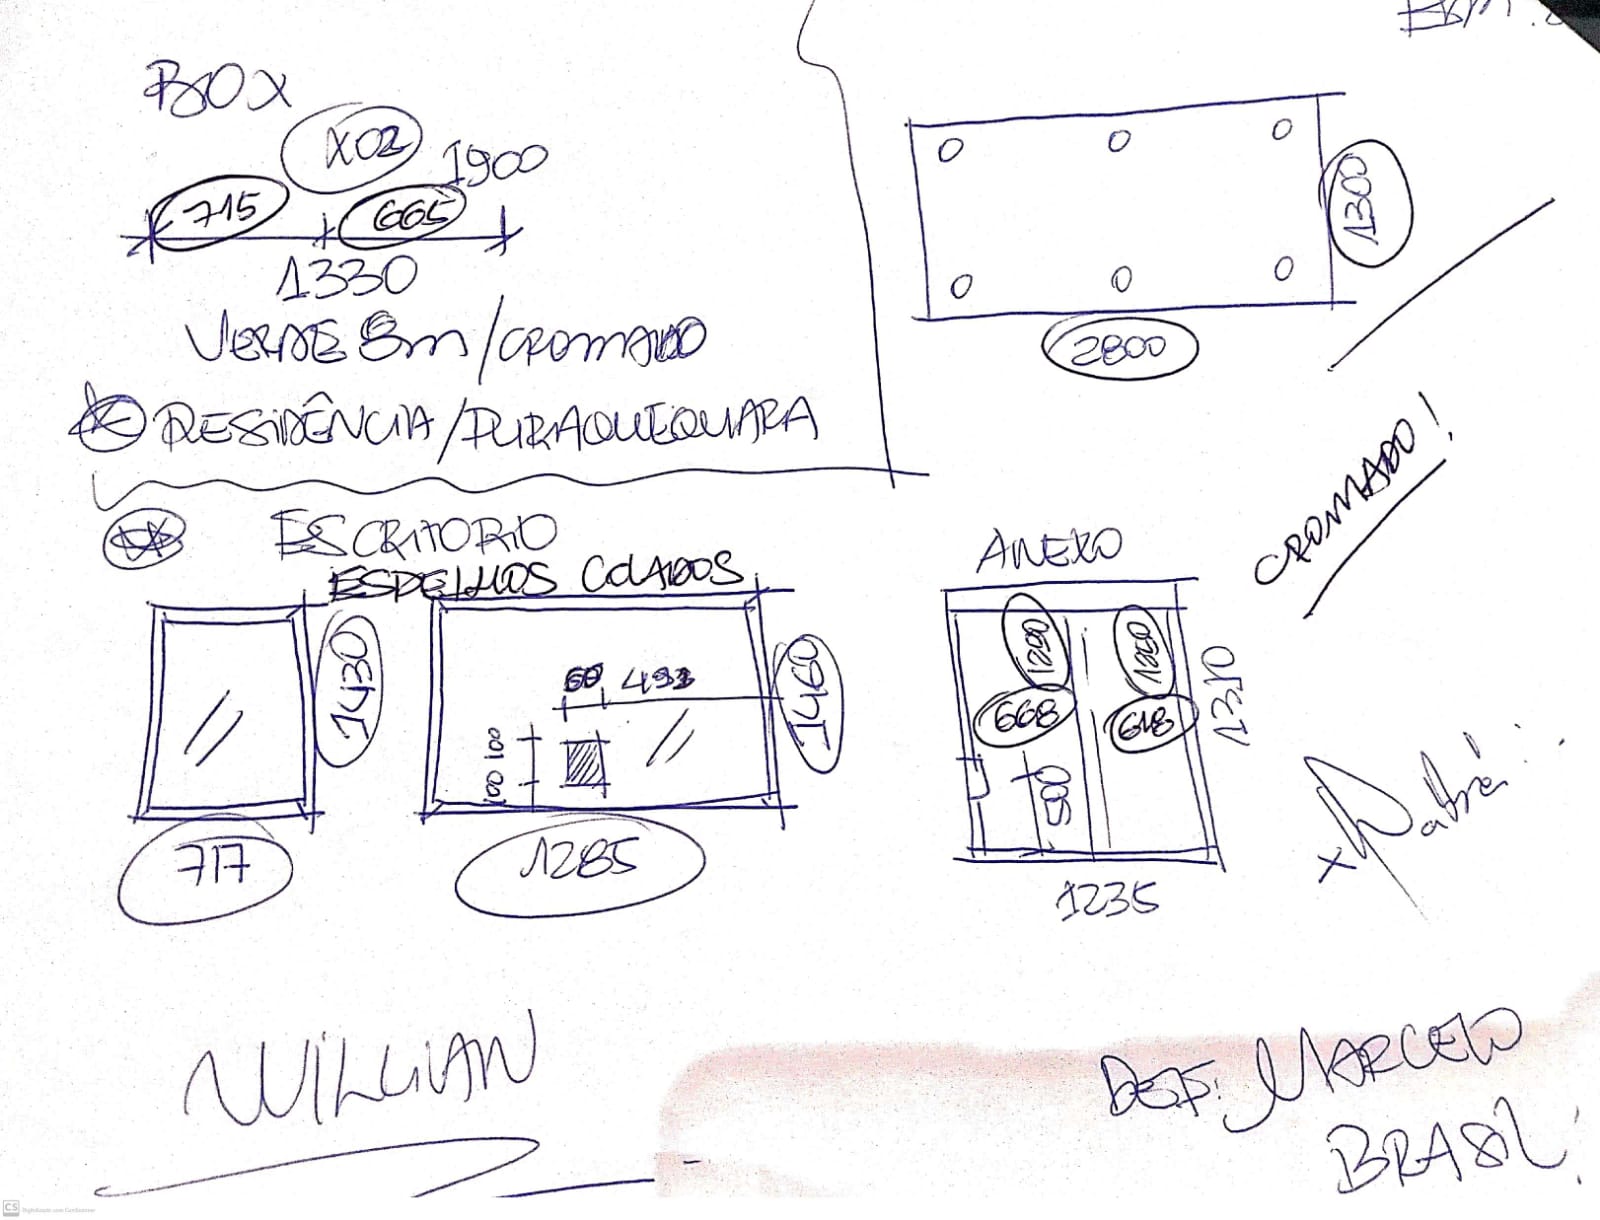 BOX
X02
1900
715
665
1330
VERDE 8m/CROMADO
RESIDÊNCIA/PURAQUEQUARA
1300
2800
CROMADO!
ESCRITORIO
ESPELHOS COLADOS
1430
717
493
100 100
1460
1285
ANEXO
1200
1200
668
618
1310
500
1235
WILLIAN
DEF: MARCELO
BRASIL
CS Digitalizado com CamScanner